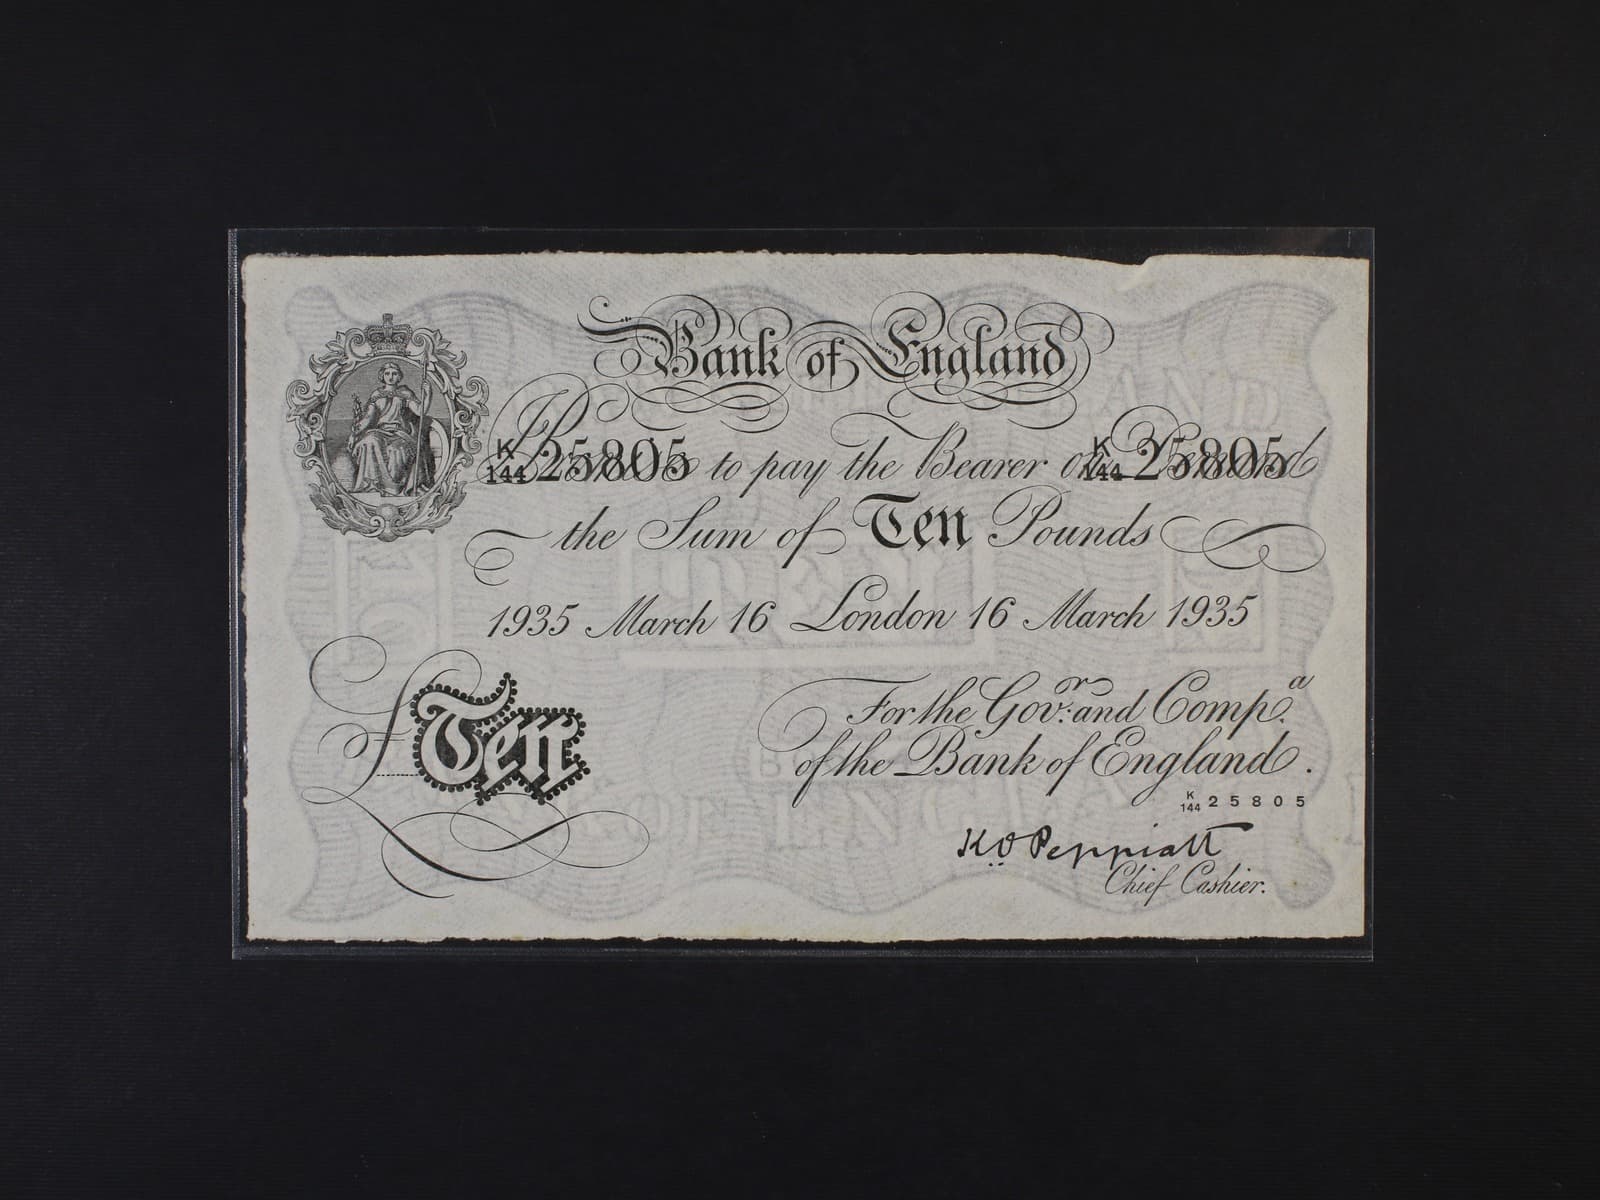 Bank of England
K/144 25805 to pay the Bearer on Demand K/144 25805
the Sum of Ten Pounds
1935 March 16 London 16 March 1935
For the Govr. and Compa.
of the Bank of England.
£ Ten
K/144 25805
K O Peppiatt
Chief Cashier.